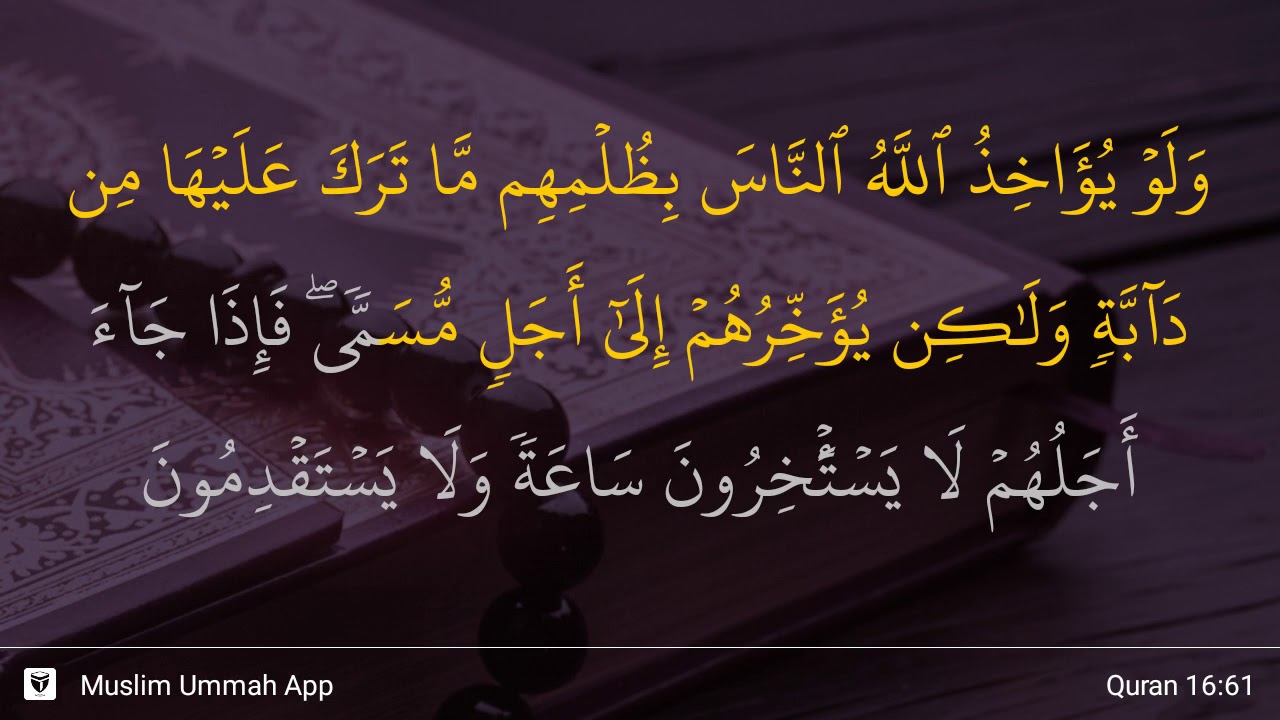 وَلَوۡ يُؤَاخِذُ ٱللَّهُ ٱلنَّاسَ بِظُلۡمِهِم مَّا تَرَكَ عَلَيۡهَا مِن
دَآبَّةٖ وَلَٰكِن يُؤَخِّرُهُمۡ إِلَىٰٓ أَجَلٖ مُّسَمّٗىۖ فَإِذَا جَآءَ
أَجَلُهُمۡ لَا يَسۡتَـٔۡخِرُونَ سَاعَةٗ وَلَا يَسۡتَقۡدِمُونَ
Muslim Ummah App
Quran 16:61